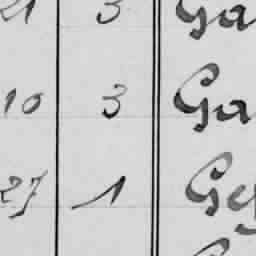 21 3 Ga
10 3 Ga
27 1 Gey